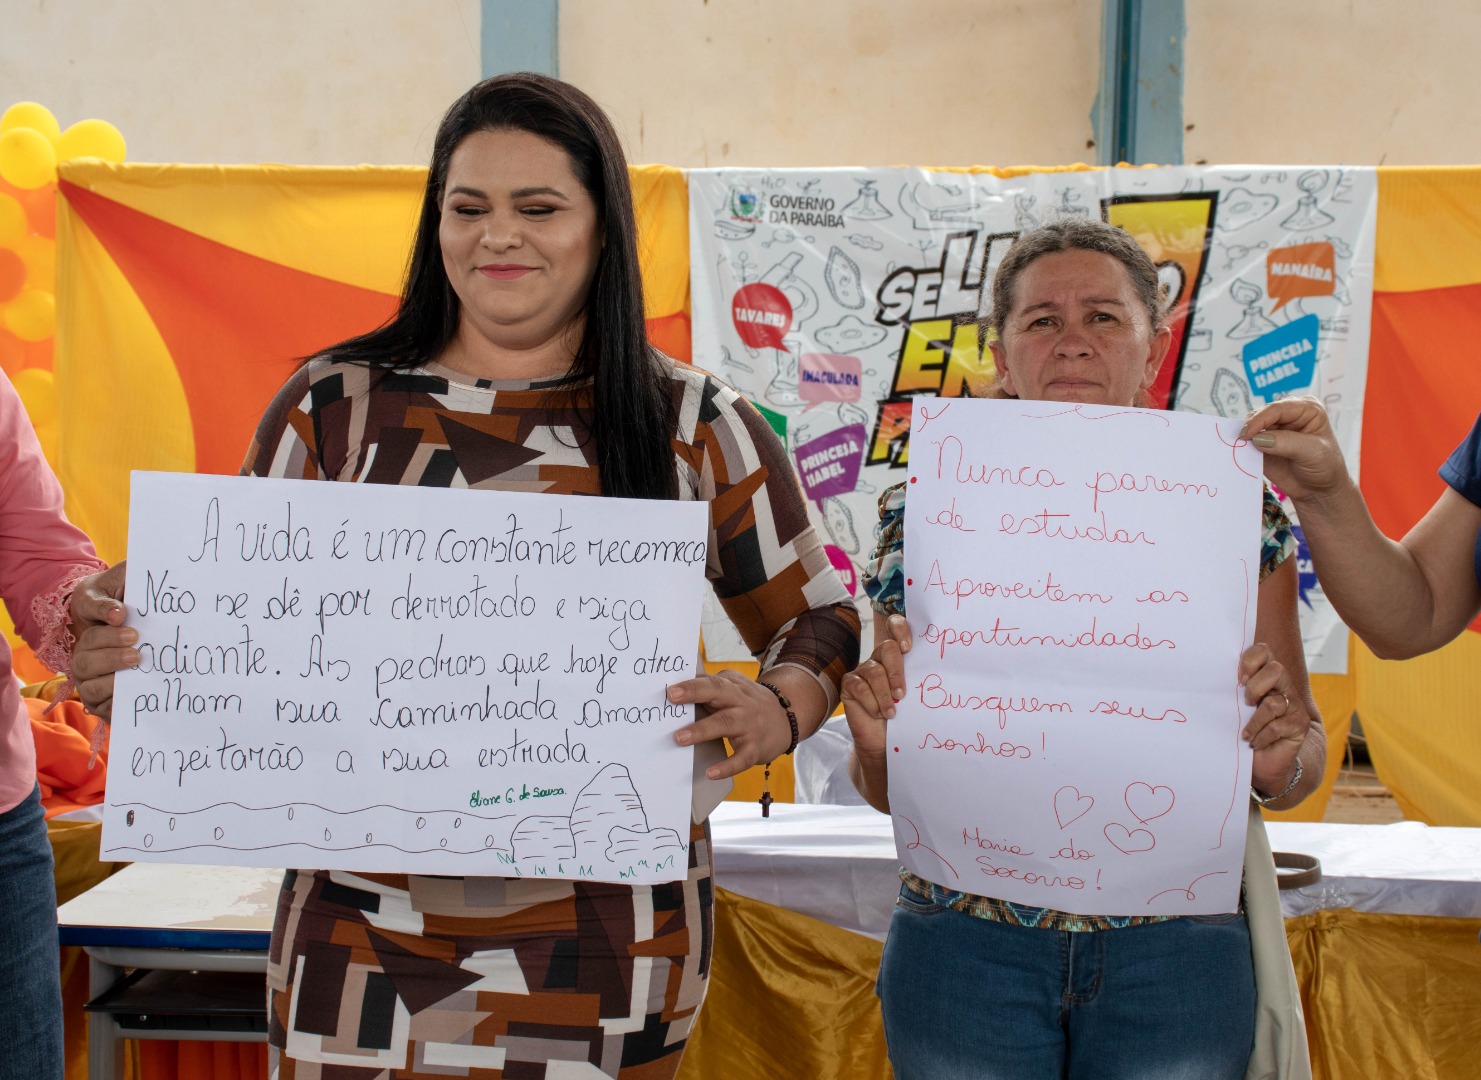 GOVERNO
DA PARAÍBA
TAVARES
IMACULADA
PRINCESA
ISABEL
MANAÍRA
PRINCESA
ISABEL
A vida é um constante recomeço.
Não se dê por derrotado e siga
adiante. As pedras que hoje atra-
palham sua caminhada amanhã
enfeitarão a sua estrada.
Eliane G. de Sousa.
Nunca parem
de estudar
Aproveitem as
oportunidades
Busquem seus
sonhos!
Maria do
Socorro!